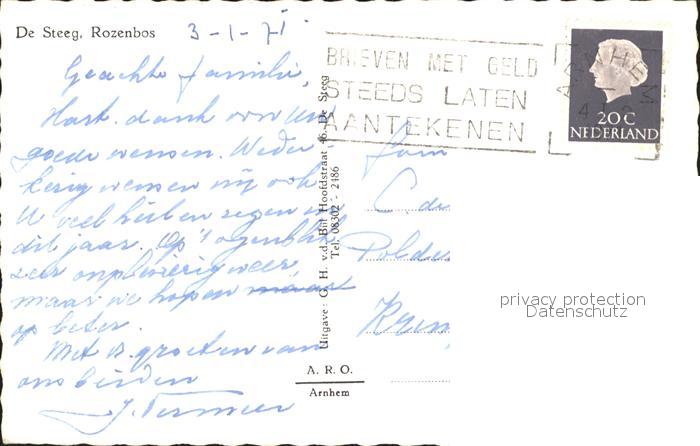 De Steeg, Rozenbos
3-1-71
Geachte familie,
Hart. dank voor Uw
goede wensen. Weder-
kerig wensen wij ook
U veel heil en zegen in
dit jaar. Op 't ogenblik
zeer onplezierig weer
maar we hopen maar
op beter.
Met h. groeten van
ons beiden
J. Vermeer
Uitgave: G. H. v.d. Bijl Hoofdstraat 46, De Steeg
Tel. 08302 - 2486
A. R. O.
Arnhem
BRIEVEN MET GELD
STEEDS LATEN
AANTEKENEN
ARNHEM
20 C
NEDERLAND
Fam
C de
Polde
privacy protection
Datenschutz